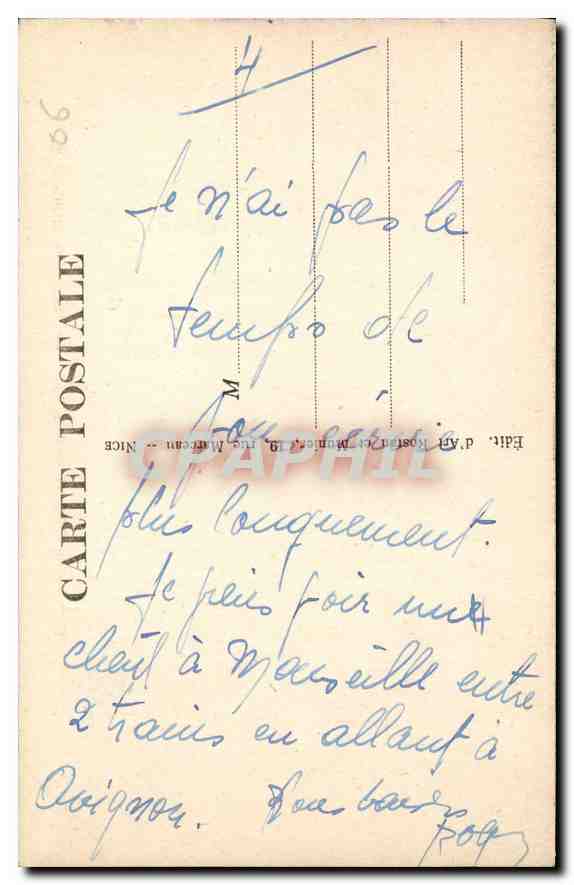 4
06
Je n'ai pas le
temps de
plus longuement.
Je puis voir un
client à Marseille entre
2 trains en allant à
Avignon. Bons baisers
CARTE POSTALE
M
Édit. d'Art Rostan et Munier, 19, rue Marceau -- NICE
CPAPHIL